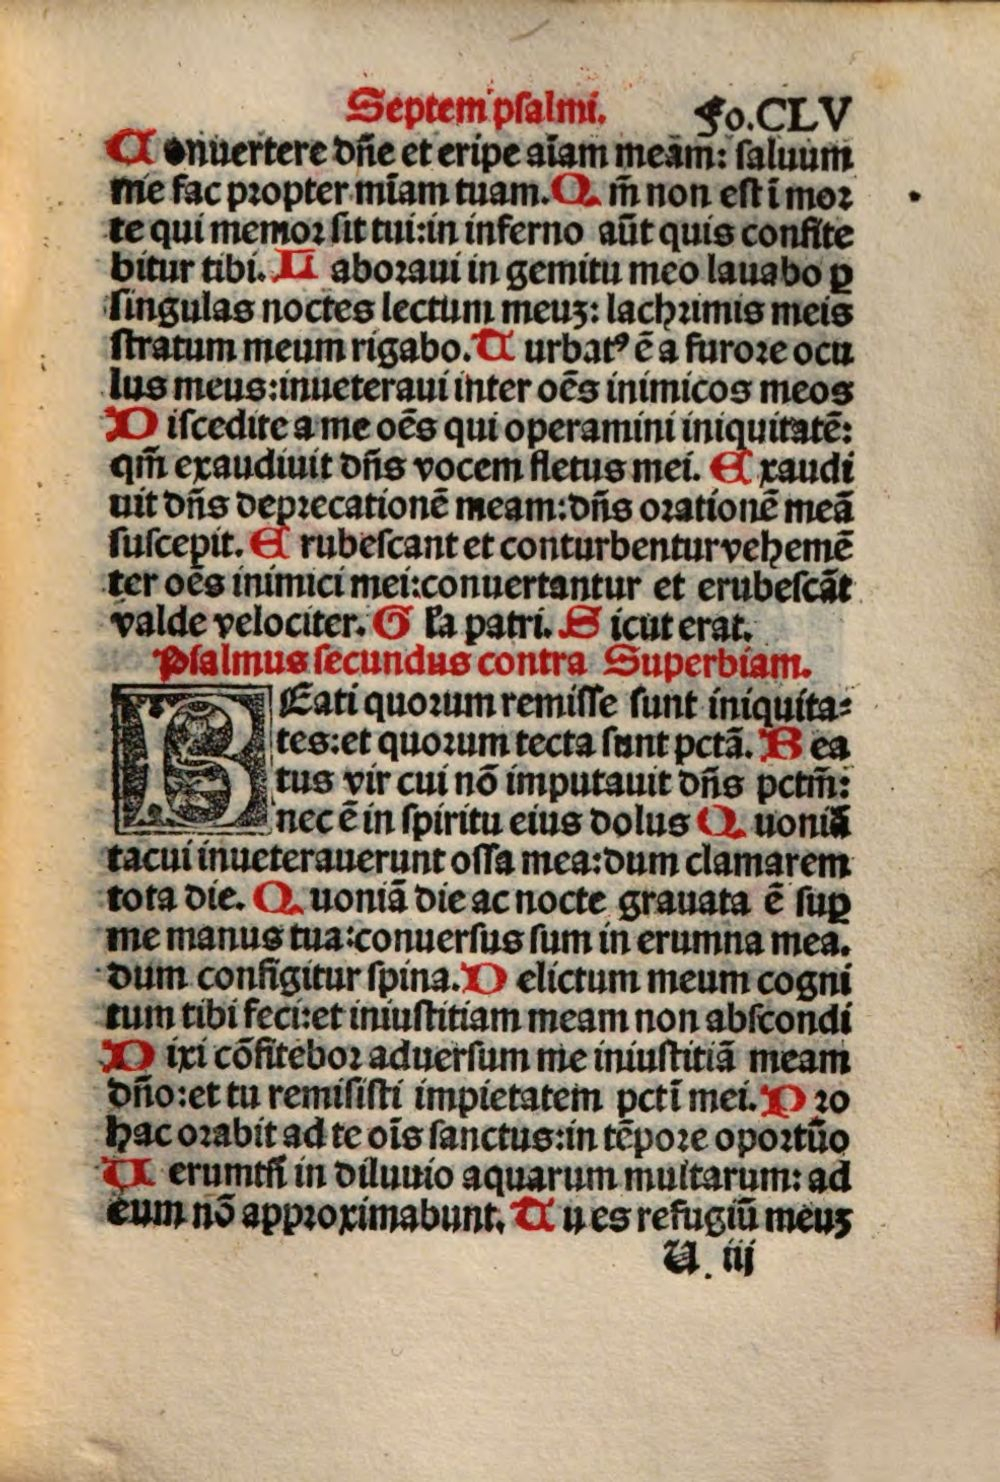 Septem psalmi. Fo.CLV
Conuertere dñe et eripe aīam meam: saluum
me fac propter mīam tuam. Qm̄ non est ī mor
te qui memor sit tui:in inferno aūt quis confite
bitur tibi. Laboraui in gemitu meo lauabo ꝑ
singulas noctes lectum meuꝫ: lachrimis meis
stratum meum rigabo. Turbatꝰ ē a furore ocu
lus meus:inueteraui inter oēs inimicos meos
Discedite a me oēs qui operamini iniquitatē:
qm̄ exaudiuit dñs vocem fletus mei. Exaudi
uit dñs deprecationē meam:dñs orationē meā
suscepit. Erubescant et conturbentur vehemē
ter oēs inimici mei:conuertantur et erubescāt
valde velociter. Gl̄a patri. Sicut erat.
Psalmus secundus contra Superbiam.
BEati quorum remisse sunt iniquita⸗
tes:et quorum tecta sunt pctā. Bea
tus vir cui nō imputauit dñs pctm̄:
nec ē in spiritu eius dolus Quoniā
tacui inueterauerunt ossa mea:dum clamarem
tota die. Quoniā die ac nocte grauata ē suꝑ
me manus tua:conuersus sum in erumna mea.
dum configitur spina. Delictum meum cogni
tum tibi feci:et iniustitiam meam non abscondi
Dixi cōfitebor aduersum me iniustitiā meam
dño:et tu remisisti impietatem pctī mei. Pro
hac orabit ad te oīs sanctus:in tēpore oportūo
Uerumtñ in diluuio aquarum multarum: ad
eum nō approximabunt. Tu es refugiū meuꝫ
U. iij